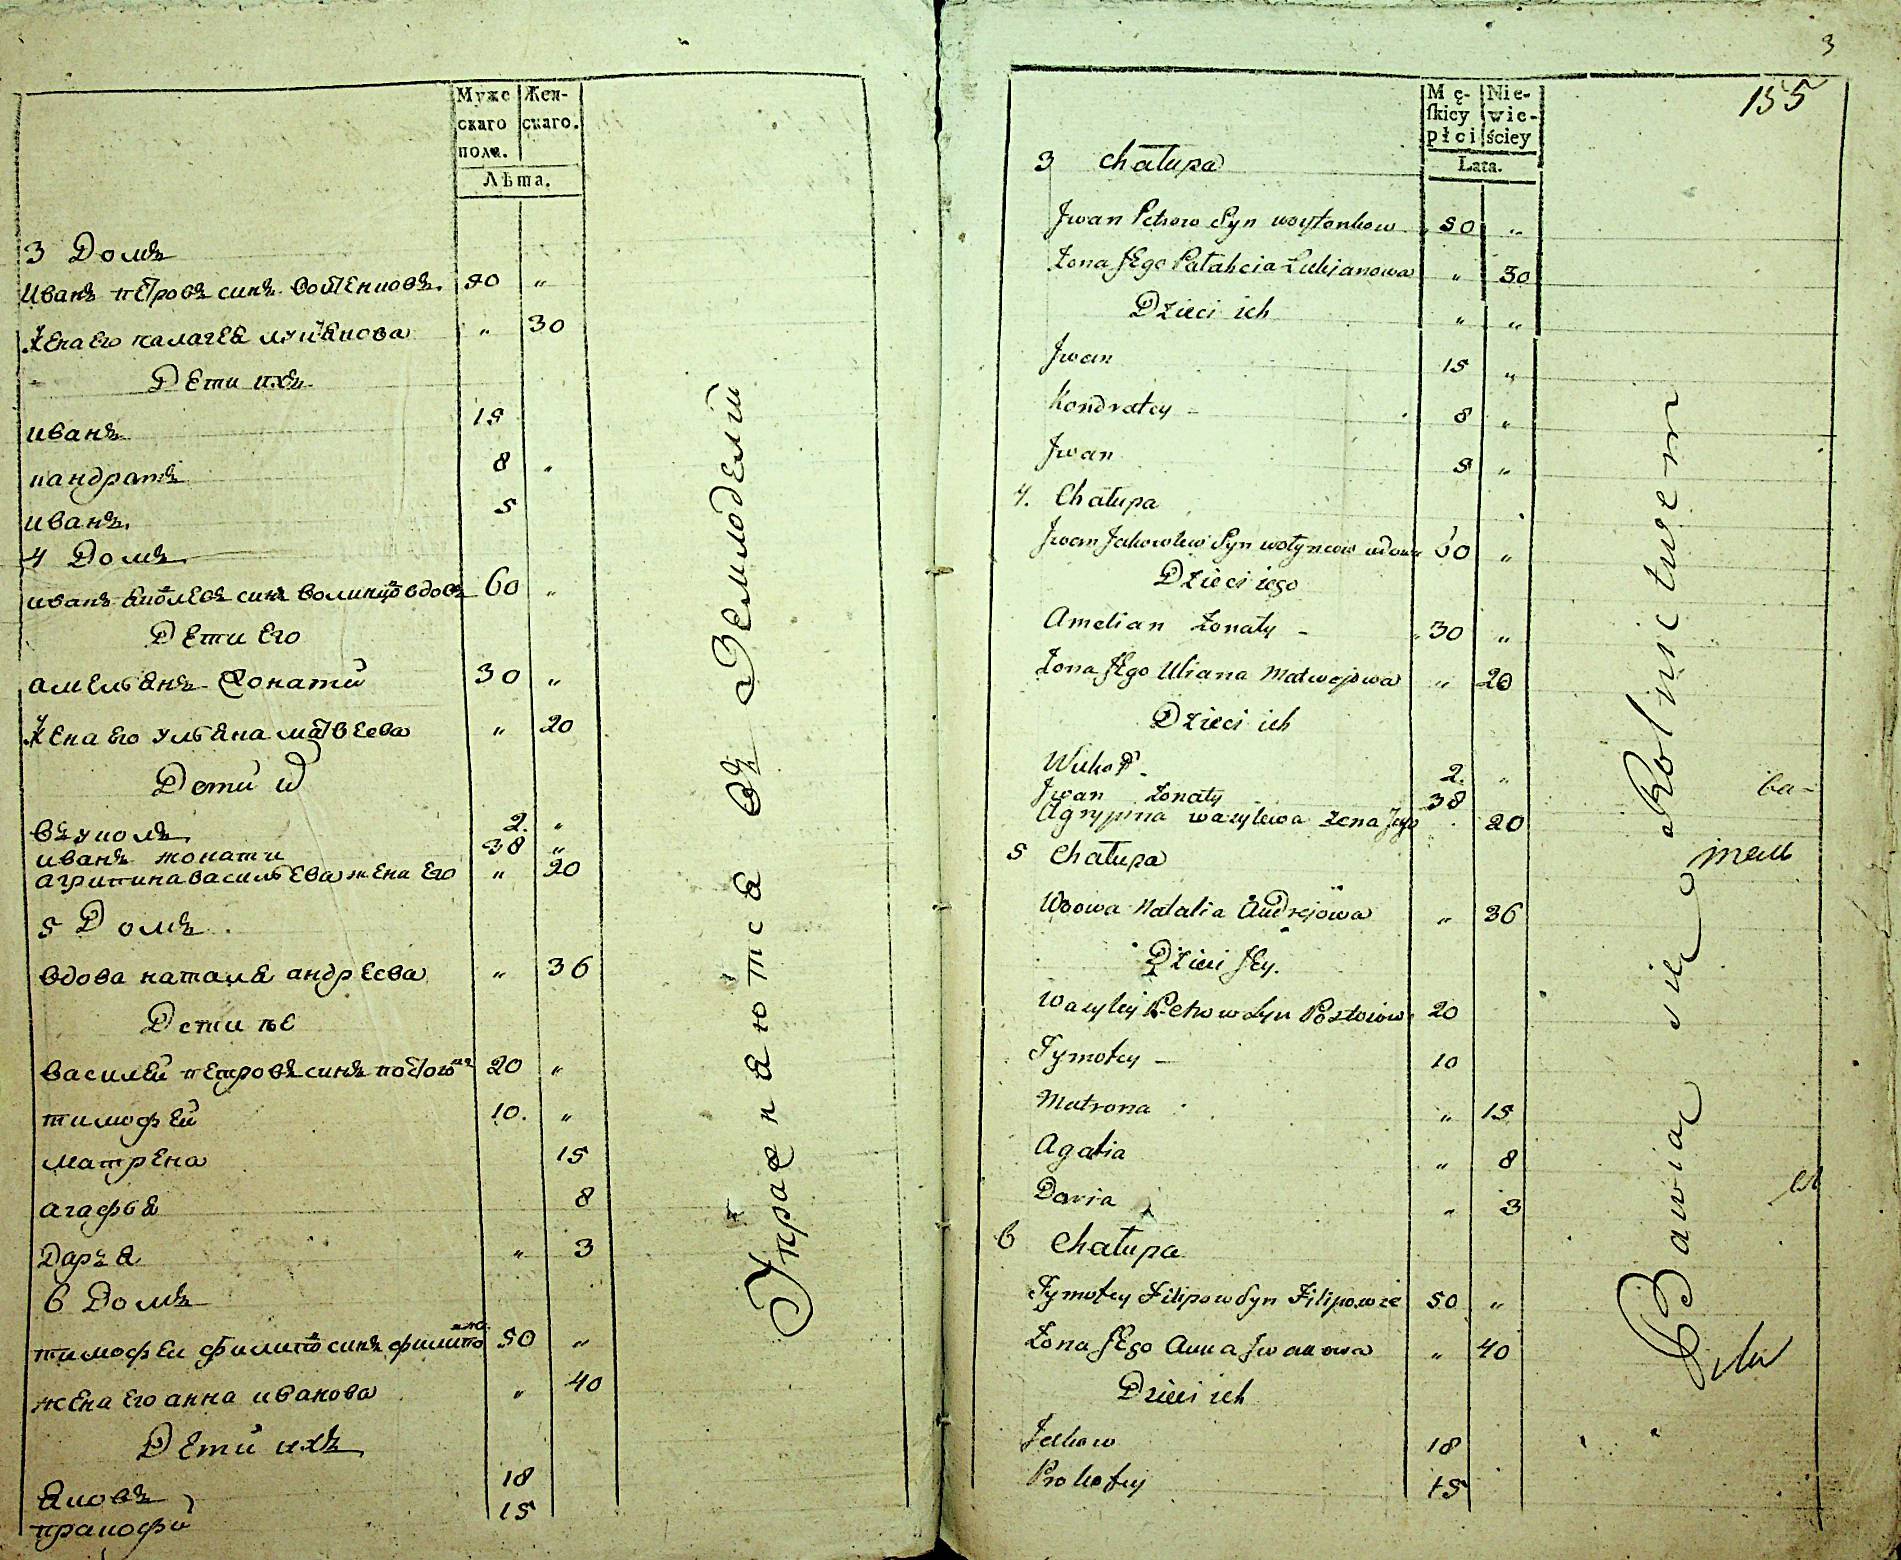 Муже
скаго
пола.
Жен-
скаго.
Лѣта.
3 Домъ
иванъ петровъ синъ 90 "
жена его палагея " 30
Дети ихъ
иванъ 15
кандратъ 8 "
иванъ. 5
4 Домъ
иванъ яковлевъ синъ волинцовъ вдовъ 60 "
Дети его
амельянъ жонатй 30 "
жена его ульяна матвеева " 20
Дети
вуколъ 2. "
иванъ жонати 38 "
агрипина васильева жена его " 20
5 Домъ
вдова наталя андреева " 36
Дети
василей петровъ синъ 20 "
тимофей 10. "
матрена 15
агафья 8
даръя " 3
6 Домъ
тимофеи филиповъ синъ 50 "
жена его анна иванова " 40
Дети ихъ
яковъ 18
пракофй 15
Упражняются въ Земледелій
3
155
Mę-
skiey
płci
Nie-
wie-
ściey
Lata.
3 Chałupa
Jwan Petrow Syn woytenkow 50 "
Żona Jego Pałaheia Łukianowa " 30
Dzieci ich " "
Jwan 15 "
Kondratey - 8 "
Jwan 5 "
4. Chałupa
Jwan Jakowlew Syn wołyncow 60 "
Dzieci iego
Amelian Żonaty - 30 "
Żona Jego Uliana Matwejowa " 20
Dzieci ich
Wukoł - 2. "
Jwan żonaty 38
Agrypina wasylewa żona Jego 20
5 Chałupa
Wdowa Natalia Andrejowa " 36
Dzieci Jey.
Wasyley Petrow Syn 20
Tymotey - 10
Matrona " 15
Agatia " 8
Daria " 3
6 Chałupa
Tymotey Filipow Syn Filipowic 50 "
Żona Jego Anna Jwanowa " 40
Dzieci ich
Jakow 18
Prokofey 15
Bawią się Rolnictwem